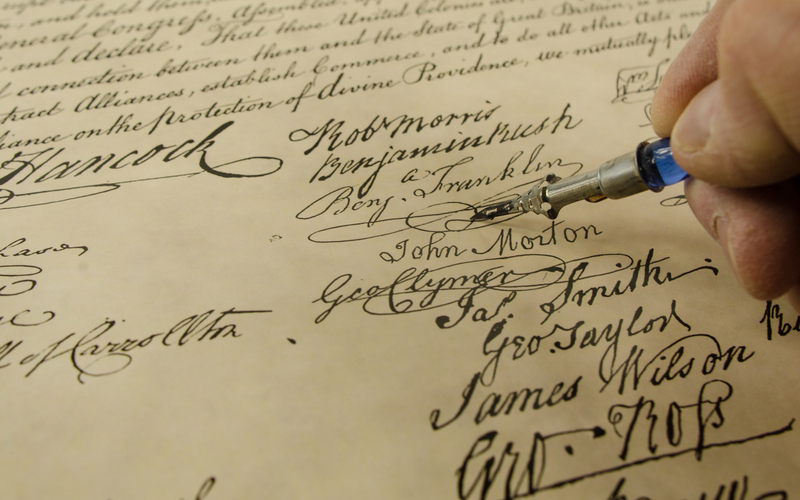 General Congress, Assembled,
and declare, That these United Colonies are,
connection between them and the State of Great Britain, is
tract Alliances, establish Commerce, and to do all other Acts and
liance on the protection of divine Providence, we mutually
Hancock
Rob Morris
Benjamin Rush
Benj. Franklin
John Morton
Geo Clymer
Jas. Smith.
Geo. Taylor
James Wilson
Geo. Ross
of Carrollton